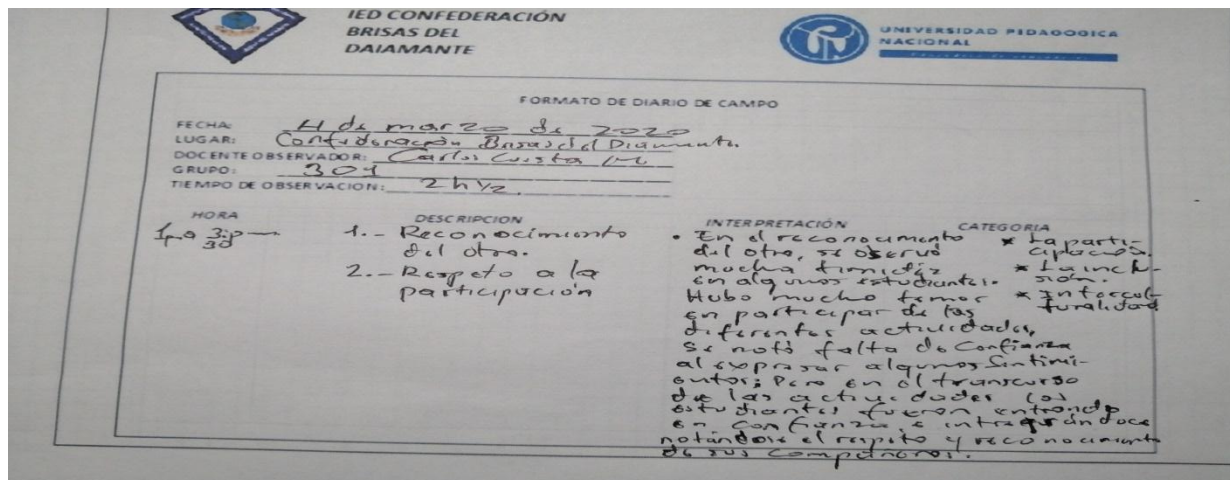 IED CONFEDERACIÓN
BRISAS DEL
DAIAMANTE
UNIVERSIDAD PEDAGOGICA
NACIONAL
FORMATO DE DIARIO DE CAMPO
FECHA: 4 de marzo de 2020
LUGAR: Confederación Brisas del Diamante.
DOCENTE OBSERVADOR: Carlos Cuesta
GRUPO: 301
TIEMPO DE OBSERVACION: 2 h ½.
HORA
DESCRIPCION
INTERPRETACIÓN
CATEGORIA
1.- Reconocimiento
del otro.
2.- Respeto a la
participación
• En el reconocimiento
del otro, se observó
mucha timidéz
en algunos estudiantes.
Hubo mucho temor
en participar de las
diferentes actividades,
se notó falta de confianza
al expresar algunos sentimi-
entos; Pero en el transcurso
de las actividades los
estudiantes fueron entrando
en confianza e integrándoce
notándose el respeto y reconocimiento
de sus compañeros.
* La parti-
cipación.
* La inclu-
sión.
* Intercul-
turalidad